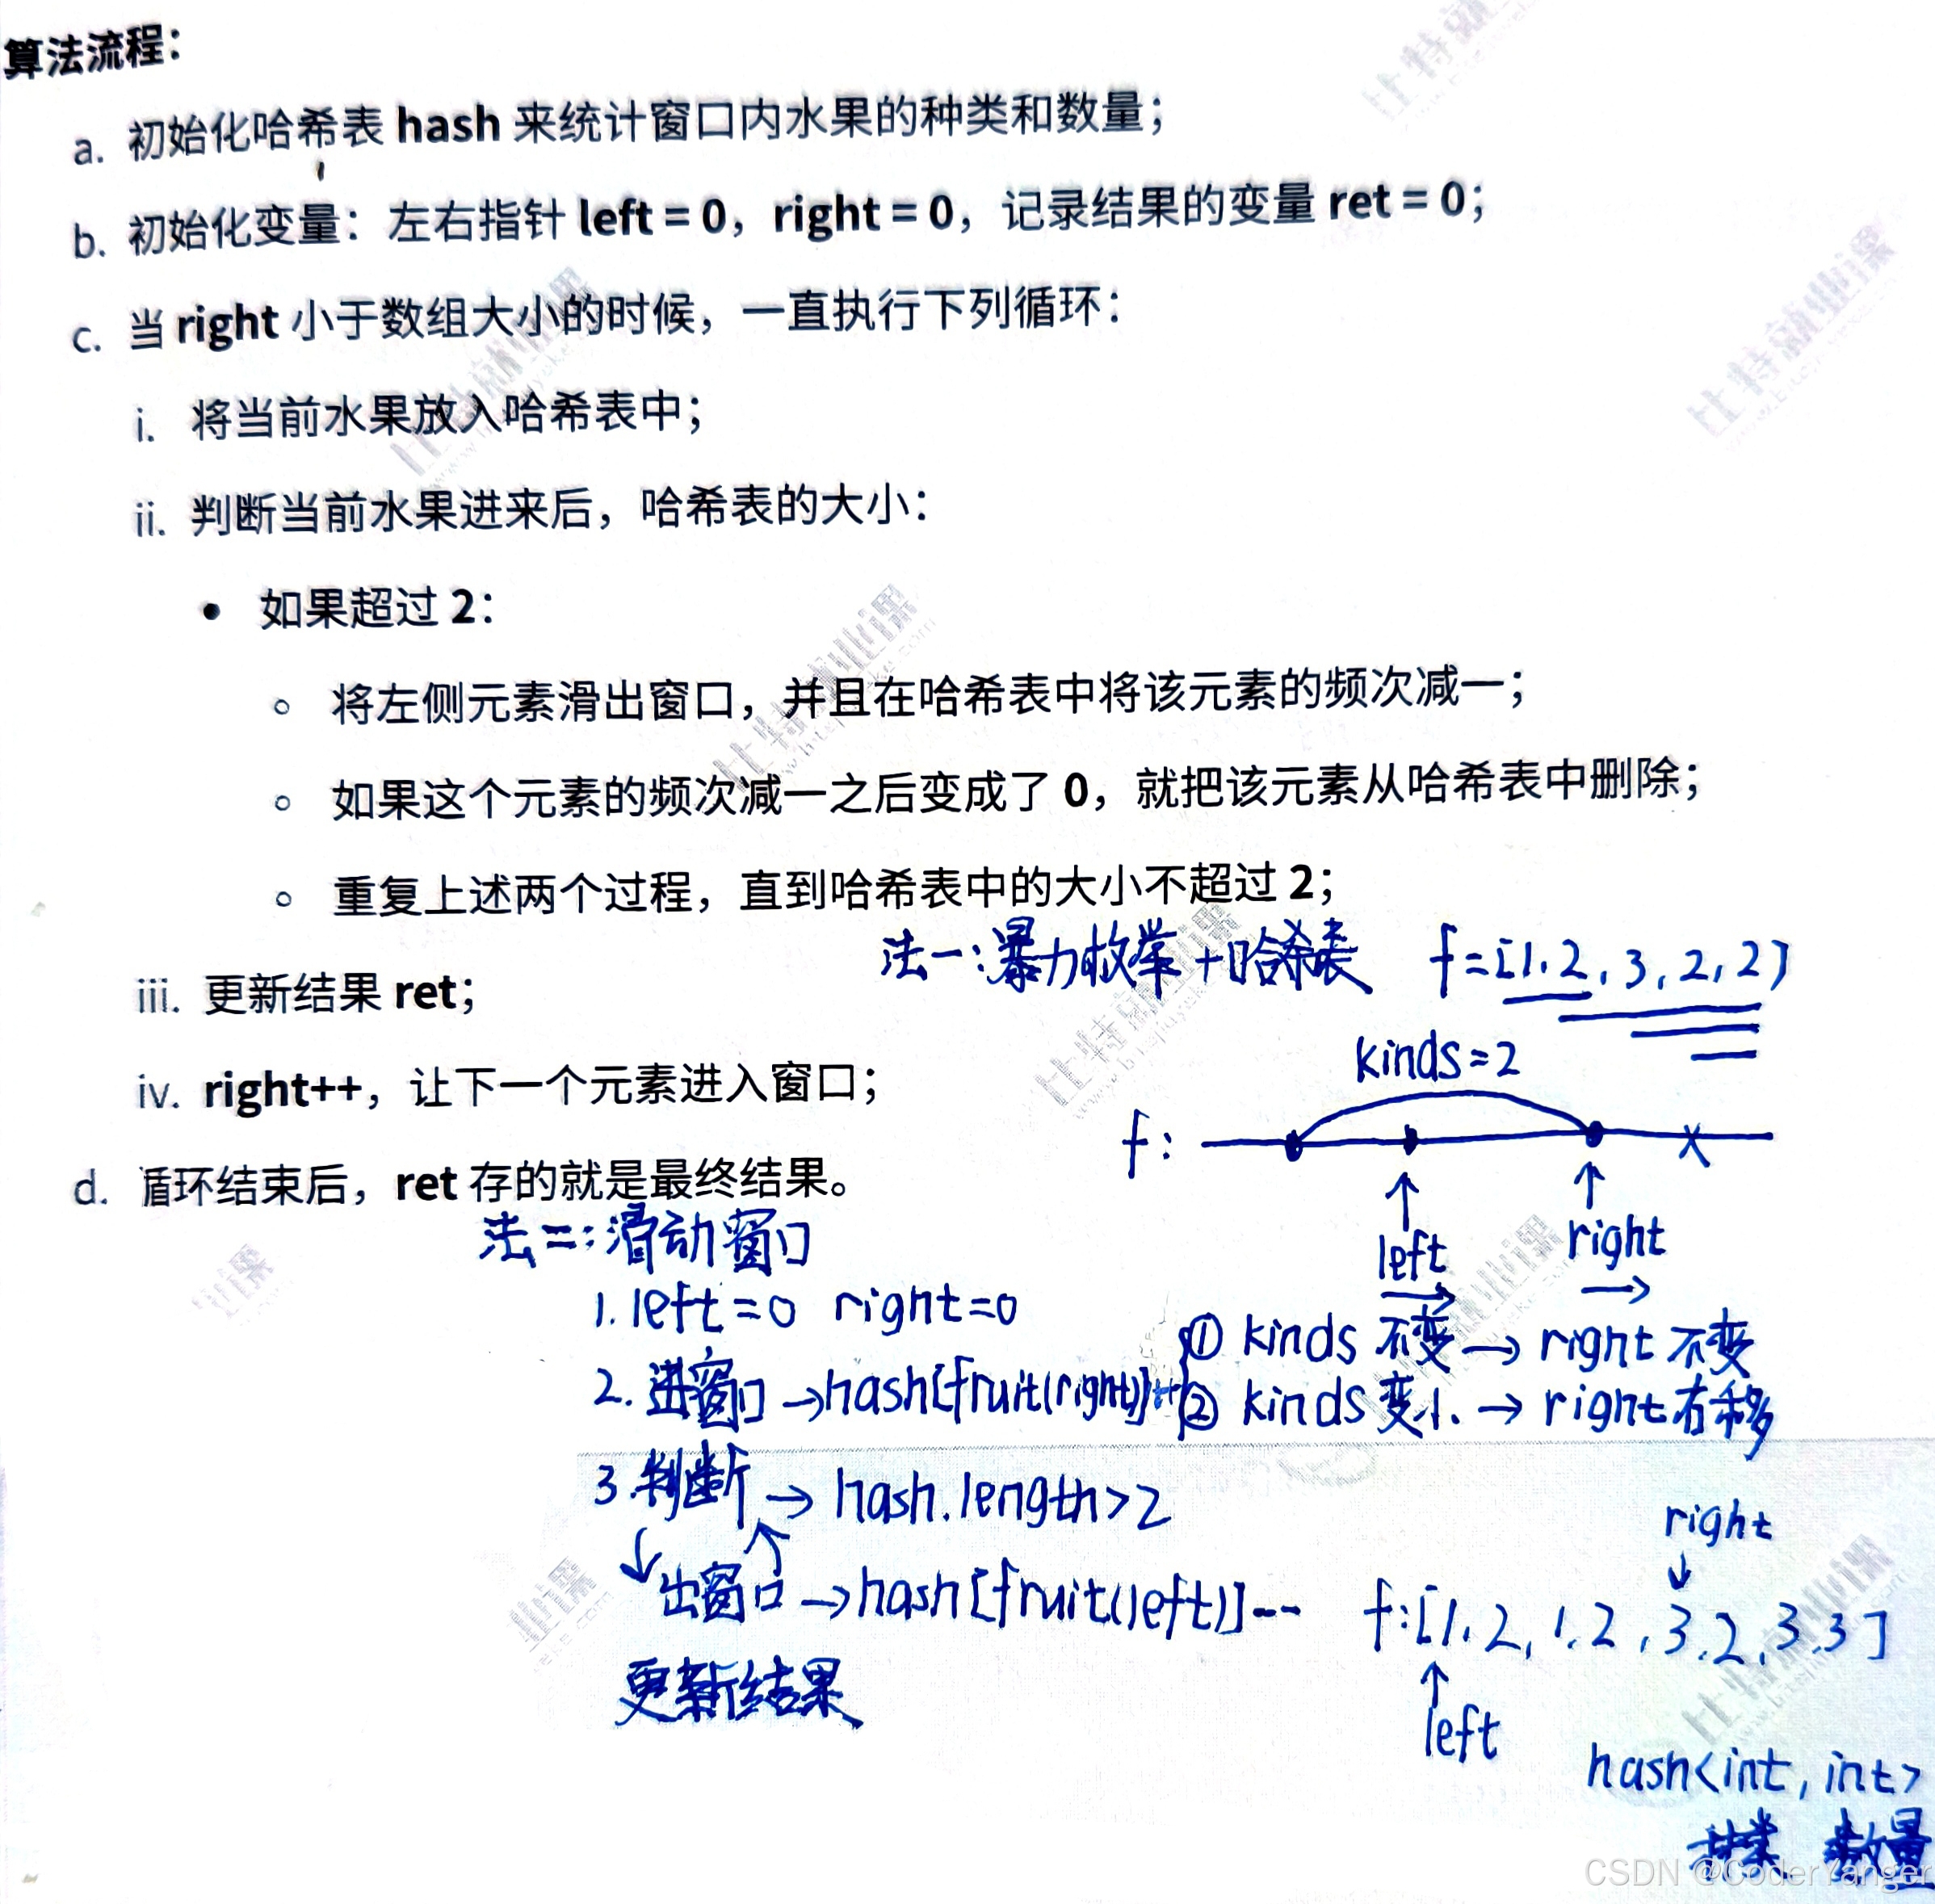 算法流程：
a. 初始化哈希表 hash 来统计窗口内水果的种类和数量；
b. 初始化变量：左右指针 left = 0，right = 0，记录结果的变量 ret = 0；
c. 当 right 小于数组大小的时候，一直执行下列循环：
i. 将当前水果放入哈希表中；
ii. 判断当前水果进来后，哈希表的大小：
• 如果超过 2：
◦ 将左侧元素滑出窗口，并且在哈希表中将该元素的频次减一；
◦ 如果这个元素的频次减一之后变成了 0，就把该元素从哈希表中删除；
◦ 重复上述两个过程，直到哈希表中的大小不超过 2；
iii. 更新结果 ret；
iv. right++，让下一个元素进入窗口；
d. 循环结束后，ret 存的就是最终结果。
法一：暴力枚举+哈希表 f=[1,2,3,2,2]
kinds=2
f:
left
right
① kinds 不变→right 不变
② kinds 变小→right 右移
法二：滑动窗口
1.left=0 right=0
2.进窗口→hash[fruit(right)]++
3.判断→hash.length>2
出窗口→hash[fruit(left)]--
更新结果
right
f:[1,2,1,2,3,2,3,3]
left
hash<int,int>
种类 数量
CSDN @CoderYanger
比特就业课
比特就业课
比特就业课
比特就业课
比特就业课
业课